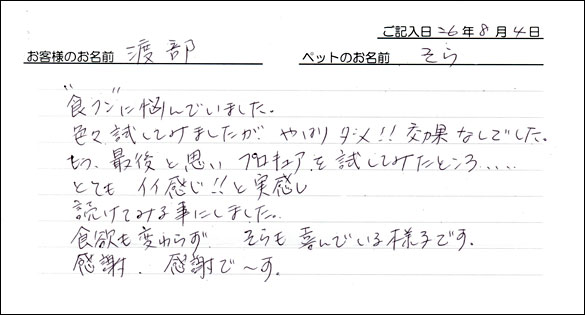 ご記入日 26年 8月 4日
お客様のお名前 渡部 ペットのお名前 そら
"食フン"に悩んでいました。
色々試してみましたが やはりダメ!! 効果なしでした。
もう、最後と思い プロキュアを試してみたところ....
とても イイ感じ!!と実感し
続けてみる事にしました。
食欲も変わらず そらも喜んでいる様子です。
感謝、感謝で〜す。